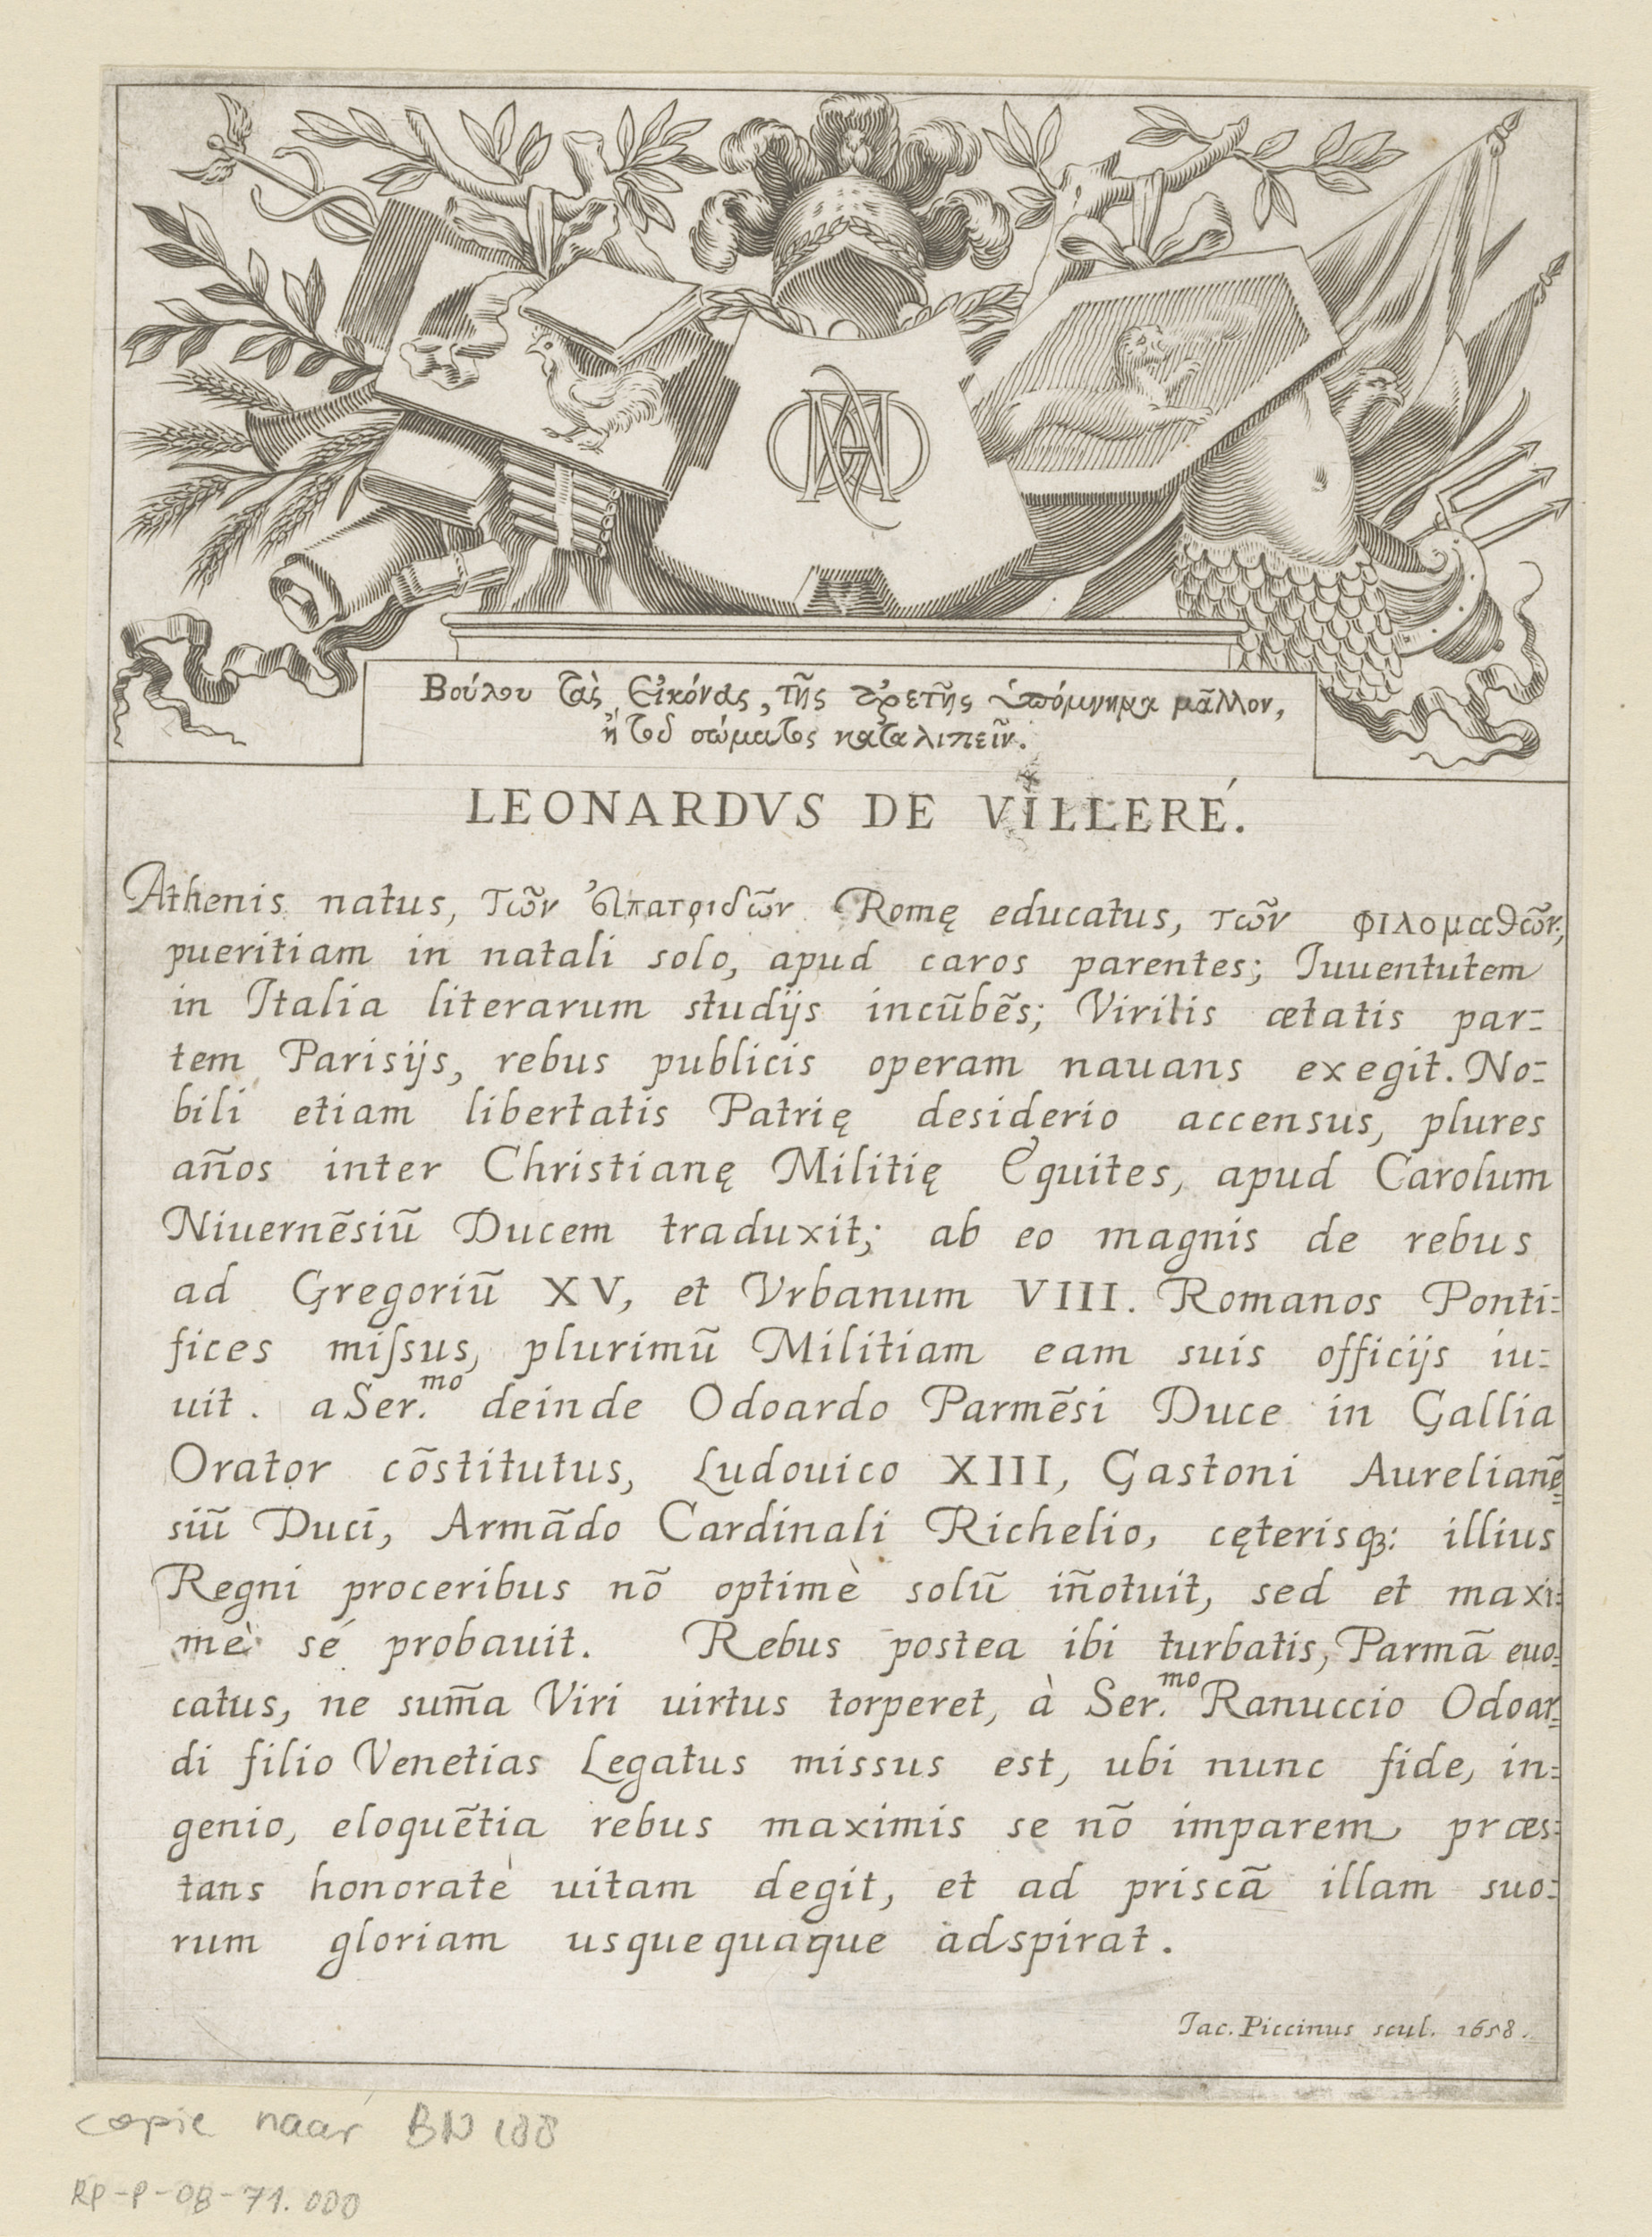 Βούλου τὰς Εἰκόνας, τῆς ἀρετῆς ὑπόμνημα μᾶλλον,
ἢ τοῦ σώματος καταλιπεῖν.
LEONARDVS DE VILLERÉ.
Athenis natus, τῶν Ἐυπατριδῶν. Romę educatus, τῶν φιλομαθῶν;
pueritiam in natali solo, apud caros parentes; Iuuentutem
in Italia literarum studijs incũbẽs; Virilis ætatis par=
tem Parisijs, rebus publicis operam nauans exegit. No=
bili etiam libertatis Patrię desiderio accensus, plures
años inter Christianę Militię Equites, apud Carolum
Niuernẽsiũ Ducem traduxit; ab eo magnis de rebus
ad Gregoriũ XV, et Vrbanum VIII. Romanos Ponti=
fices miſsus, plurimũ Militiam eam suis officijs iu=
uit. a Ser.mo deinde Odoardo Parmẽsi Duce in Gallia
Orator cõstitutus, Ludouico XIII, Gastoni Aurelianẽ=
siũ Duci, Armãdo Cardinali Richelio, cęterisqꝫ: illius
Regni proceribus nõ optimè solũ iñotuit, sed et maxi=
mè sé probauit. Rebus postea ibi turbatis, Parmã euo=
catus, ne sum̃a Viri uirtus torperet, à Ser.mo Ranuccio Odoar=
di filio Venetias Legatus missus est, ubi nunc fide, in=
genio, eloquẽtia rebus maximis se nõ imparem præs=
tans honoratè uitam degit, et ad priscã illam suo=
rum gloriam usquequaque adspirat.
Jac. Piccinus scul. 1658.
copie naar BN 188
RP-P-OB-71.000